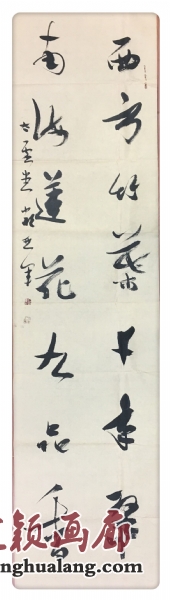 西方竹葉千年翠
南海蓮花九品香
颖画廊
nghualang.com